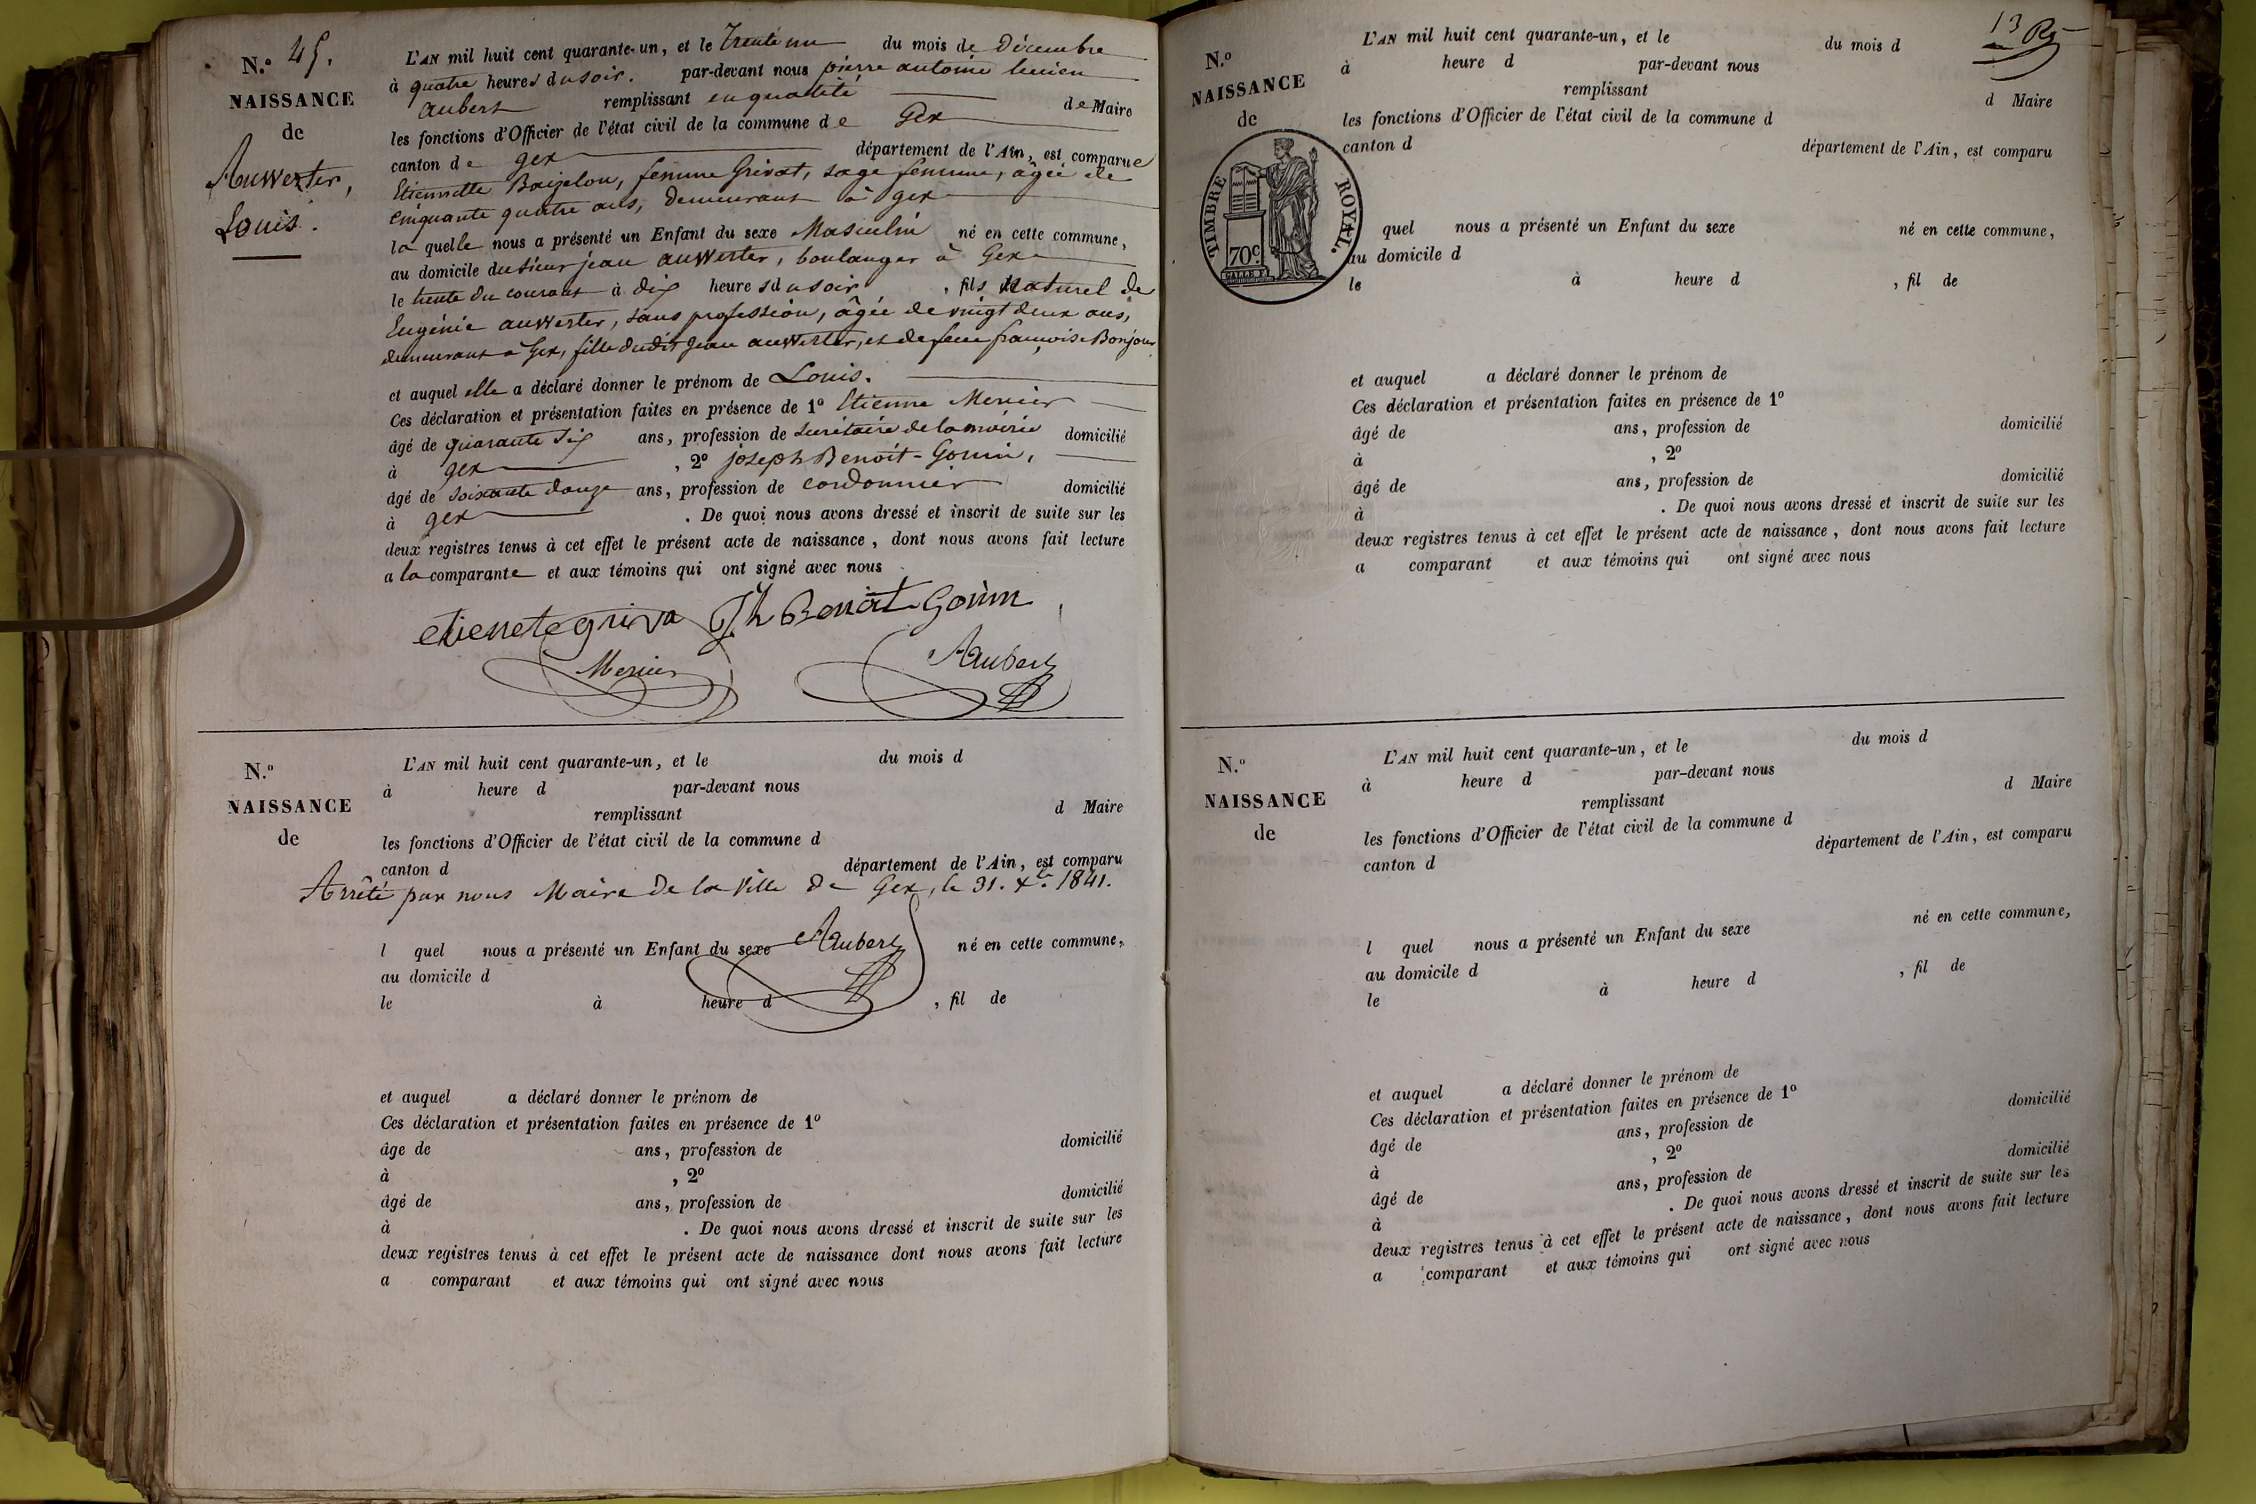 N.º 45.
NAISSANCE
de
Auwerter,
Louis.
L'AN mil huit cent quarante-un, et le trente un du mois de Décembre
à quatre heures du soir. par-devant nous pierre antoine lucien
aubert remplissant en qualité de Maire
les fonctions d'Officier de l'état civil de la commune de Gex
canton de gex département de l'Ain, est comparue
Etiennette Baizelon, femme Grivat, sage femme, âgée de
cinquante quatre ans, demeurant à gex
la quelle nous a présenté un Enfant du sexe Masculin né en cette commune,
au domicile du sieur jean auwerter, boulanger à Gex
le trente du courant à dix heures du soir, fils Naturel de
Eugénie auwerter, sans profession, âgée de vingt deux ans,
demeurant à Gex, fille dudit Jean auwerter, et de feue françoise Bonjour
et auquel elle a déclaré donner le prénom de Louis.
Ces déclaration et présentation faites en présence de 1º Etienne Mercier
âgé de quarante six ans, profession de secrétaire de la mairie domicilié
à gex , 2º joseph Benoit-Gonin,
âgé de soixante douze ans, profession de cordonnier domicilié
à gex . De quoi nous avons dressé et inscrit de suite sur les
deux registres tenus à cet effet le présent acte de naissance, dont nous avons fait lecture
a la comparante et aux témoins qui ont signé avec nous
etienete griva Jh Benoit Gonin
Mercier Aubert
N.º
NAISSANCE
de
L'AN mil huit cent quarante-un, et le du mois d
à heure d par-devant nous
remplissant d Maire
les fonctions d'Officier de l'état civil de la commune d
canton d département de l'Ain, est comparu
Arrêté par nous Maire de la Ville de Gex, le 31. Xbre 1841.
l quel nous a présenté un Enfant du sexe Aubert né en cette commune,
au domicile d
le à heure d , fil de
et auquel a déclaré donner le prénom de
Ces déclaration et présentation faites en présence de 1º
âge de ans, profession de domicilié
à , 2º
âgé de ans, profession de domicilié
à . De quoi nous avons dressé et inscrit de suite sur les
deux registres tenus à cet effet le présent acte de naissance dont nous avons fait lecture
a comparant et aux témoins qui ont signé avec nous
13
N.º
NAISSANCE
de
TIMBRE ROYAL.
70c.
L'AN mil huit cent quarante-un, et le du mois d
à heure d par-devant nous
remplissant d Maire
les fonctions d'Officier de l'état civil de la commune d
canton d département de l'Ain, est comparu
quel nous a présenté un Enfant du sexe né en cette commune,
au domicile d
le à heure d , fil de
et auquel a déclaré donner le prénom de
Ces déclaration et présentation faites en présence de 1º
âgé de ans, profession de domicilié
à , 2º
âgé de ans, profession de domicilié
à . De quoi nous avons dressé et inscrit de suite sur les
deux registres tenus à cet effet le présent acte de naissance, dont nous avons fait lecture
a comparant et aux témoins qui ont signé avec nous
N.º
NAISSANCE
de
L'AN mil huit cent quarante-un, et le du mois d
à heure d par-devant nous
remplissant d Maire
les fonctions d'Officier de l'état civil de la commune d
canton d département de l'Ain, est comparu
l quel nous a présenté un Enfant du sexe né en cette commune,
au domicile d
le à heure d , fil de
et auquel a déclaré donner le prénom de
Ces déclaration et présentation faites en présence de 1º
âgé de ans, profession de domicilié
à , 2º
âgé de ans, profession de domicilié
à . De quoi nous avons dressé et inscrit de suite sur les
deux registres tenus à cet effet le présent acte de naissance, dont nous avons fait lecture
a comparant et aux témoins qui ont signé avec nous